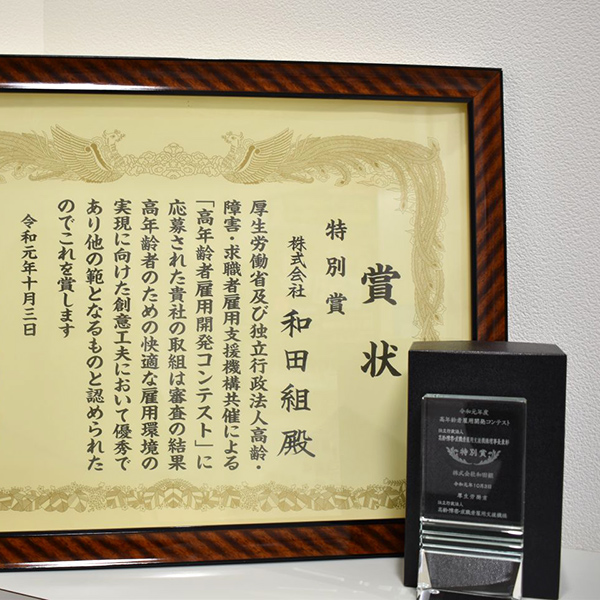 賞状
特別賞
株式会社 和田組殿
厚生労働省及び独立行政法人高齢・
障害・求職者雇用支援機構共催による
「高年齢者雇用開発コンテスト」に
応募された貴社の取組は審査の結果
高年齢者のための快適な雇用環境の
実現に向けた創意工夫において優秀で
あり他の範となるものと認められた
のでこれを賞します
令和元年十月三日
令和元年度
高年齢者雇用開発コンテスト
独立行政法人
高齢・障害・求職者雇用支援機構理事長表彰
特別賞
株式会社和田組
令和元年10月3日
厚生労働省
独立行政法人
高齢・障害・求職者雇用支援機構